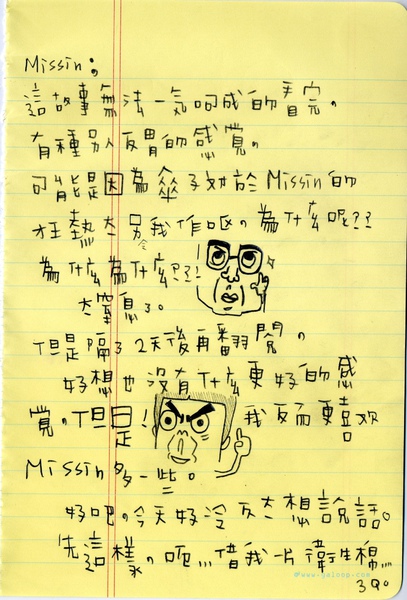 Missin:
這故事無法一氣呵成的看完。
有種另人反胃的感覺。
可能是因為傘子對於Missin的
狂熱太另我作嘔。為什広呢??
令
為什広為什広!?!!
太窒息了。
但是隔了2天後再翻閱。
好想也沒有什広更好的感
覺。但是! 我反而更喜歡
Missin多一些。
好吧。今天好冷 反太想說話。
先這樣。呃... 借我一片衛生棉...
3Q。
www.yeloop.com